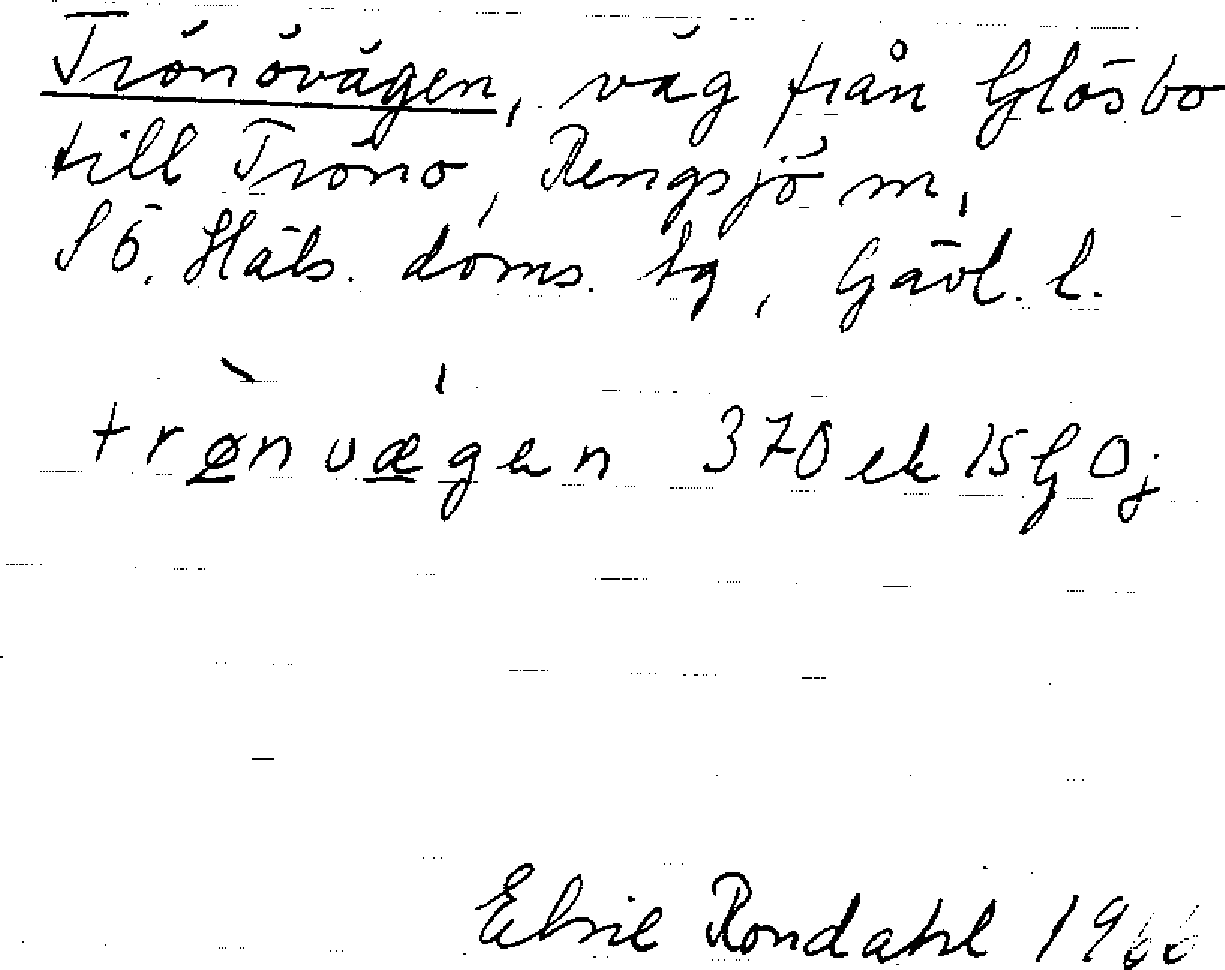 Trönövägen, väg från Glösbo
till Trönö, Rengsjö m,
S Ö. Häls. doms. tg, Gävl. l.
trø̀nvæ̍gen 370 ek 15G0j
Elsie Rondahl 1966